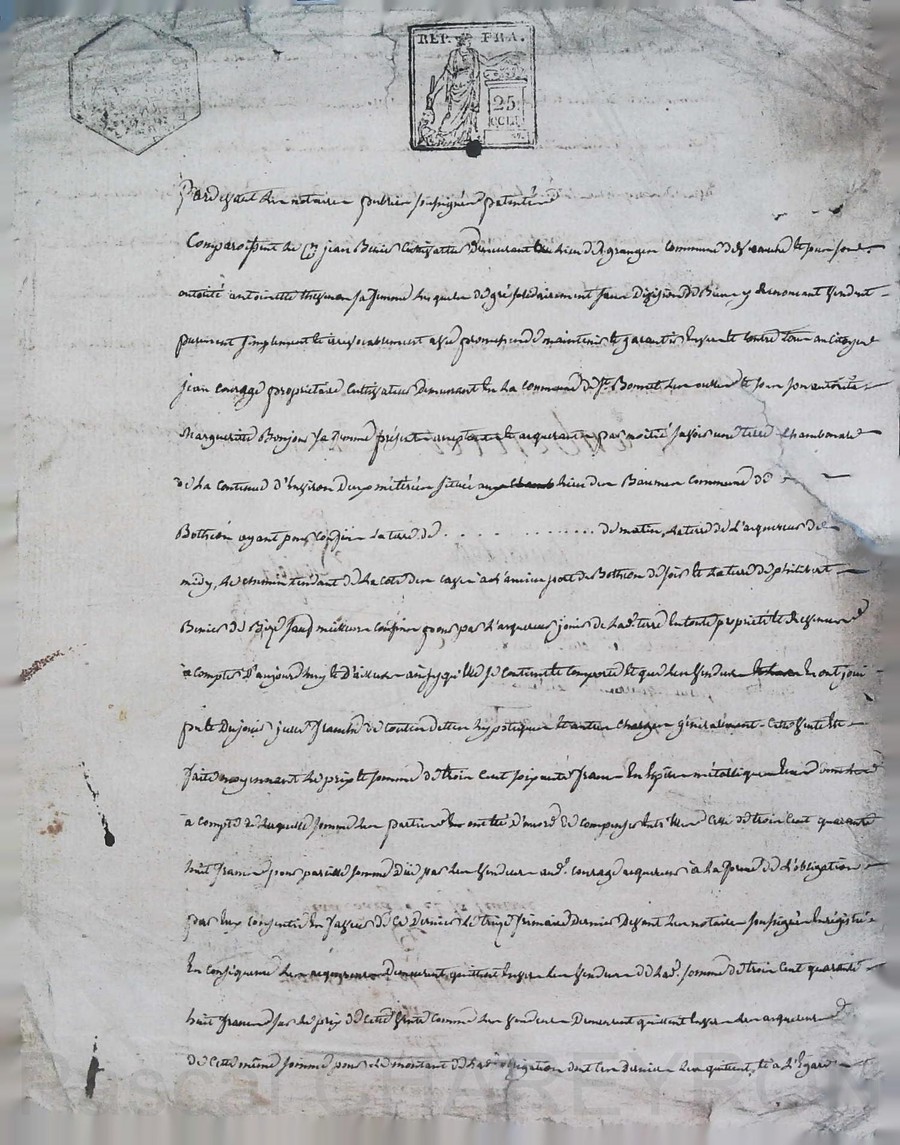 REP. FRA.
25
CCEN
Pardevant les notaires publics soussignés patentés
Comparoissent le Cen jean Benier Cultivateur Demeurant au lieu des granges Commune de et pour son
autorité antoinette sa femme lesquels de gré solidairement sans Division De Biens y Renoncant vendent
purement simplement et irrevocablement avec promesse de maintenir et garantir Envers et contre tous au Citoyen
jean courage propriétaire Cultivateur Demeurant En la Commune de St Bonnet les oules et sous son autorité
Marguerite Bonjour sa femme présents acceptants et acquerants par moitié savoir une terre Chambonard
de la contenue d'Environ Deux métérées située lieu des Baumes Commune de
Bothéon ayant pour confin la terre de . . . . . . . . . . de matin, la terre de l'acquereur de
midy, le chemin tendant de la cote des a l'ancien port de Bothéon de soir et la terre de philibert
Benier de Bize sauf meilleurs confins pour par l'acquereur jouir de lad. terre En toute propriété
a compter D'aujourd'huy et D'ailleurs ainsy qu'elle se contient et comporte et que les vendeurs En ont joui
pu et Du jouir franche de toutes dettes hypotèques et autres charges généralement. Cette vente est
faite moyennant le prix et somme de trois cent soixante francs En Espèces métalliques
a compte de laquelle somme les parties ont été d'accord de compenser Entr'elles Celle de trois cent quarante
huit francs pour pareille somme Due par les vendeurs aud. courage acquereur à la forme de l'obligation
par Eux consentie En faveur de Ce Dernier le treize frimaire Dernier Devant les notaires soussignés Enregistré
En conséquence les acquereurs Demeurent quittes Envers les vendeurs de lad. somme de trois Cent quarante
huit francs sur le prix de Cette vente Comme les vendeurs Demeurent quittes Envers les acquereurs
de Cette même somme pour le montant de lad. obligation dont les derniers les quittent, et a l'Egard